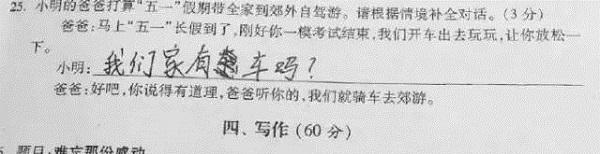 25. 小明的爸爸打算“五一”假期带全家到郊外自驾游。请根据情境补全对话。(3 分)
爸爸:马上“五一”长假到了,刚好你一模考试结束,我们开车出去玩玩,让你放松一
下。
小明:我们家有车吗?
爸爸:好吧,你说得有道理,爸爸听你的,我们就骑车去郊游。
四、写作(60 分)
题目:难忘那份感动